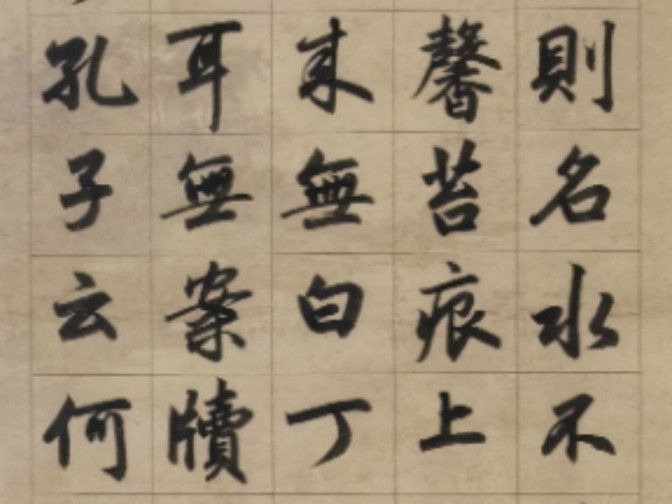 則名水不
馨苔痕上
来無白丁
耳無案牘
孔子云何